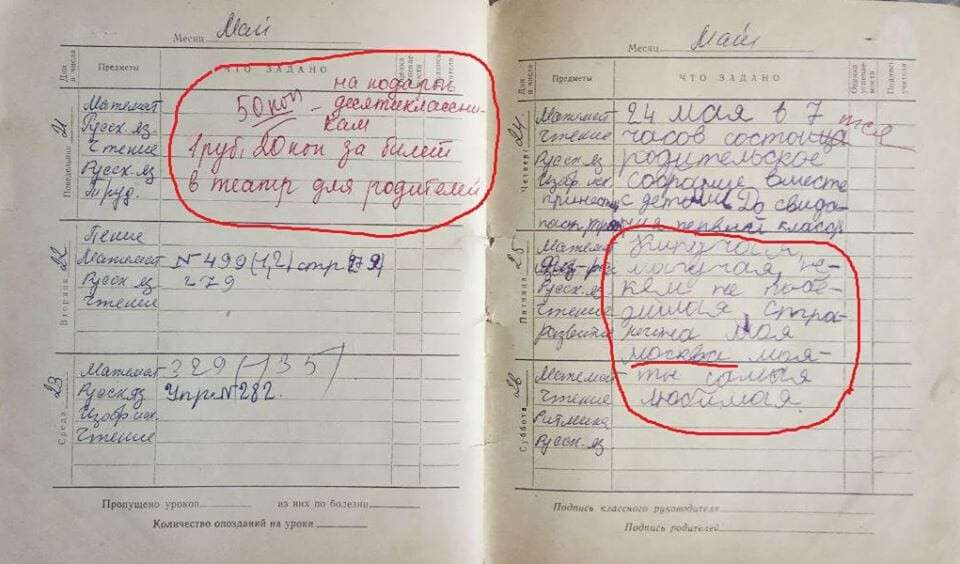 Месяц Май
Дни и числа
Предметы
ЧТО ЗАДАНО
Понедельник 21
Математ
Русск. яз.
Чтение
Русск. яз
Труд.
50 коп – на подарок
десятиклассни-
кам
1 руб, 20 коп за билет
в театр для родителей
Вторник 22
Пение
Математ N 499 (1,2) стр
Русск яз 279
Чтение
Среда 23
Математ 329 (135)
Русск яз Упр. N 282.
Изобр. иск.
Чтение
Пропущено уроков из них по болезни
Количество опозданий на уроки
Месяц Май
Дни и числа
Предметы
ЧТО ЗАДАНО
Оценка успевае-мости
Подпись учителя
Четверг 24
Математ 24 мая в 7
Чтение часов состоица тся
Русск яз родительское
Изобр. иск. собрание вместе
принести с детьми До свида-
ния первый класс
Пятница 25
Математ Кипучая,
могучая, не-
Русск. яз кем не побе-
Чтение димая стра-
развитие на моя
москва моя-
Суббота 26
Математ ты самая
Чтение любимая.
Ритмика
Русск. яз
Подпись классного руководителя
Подпись родителей